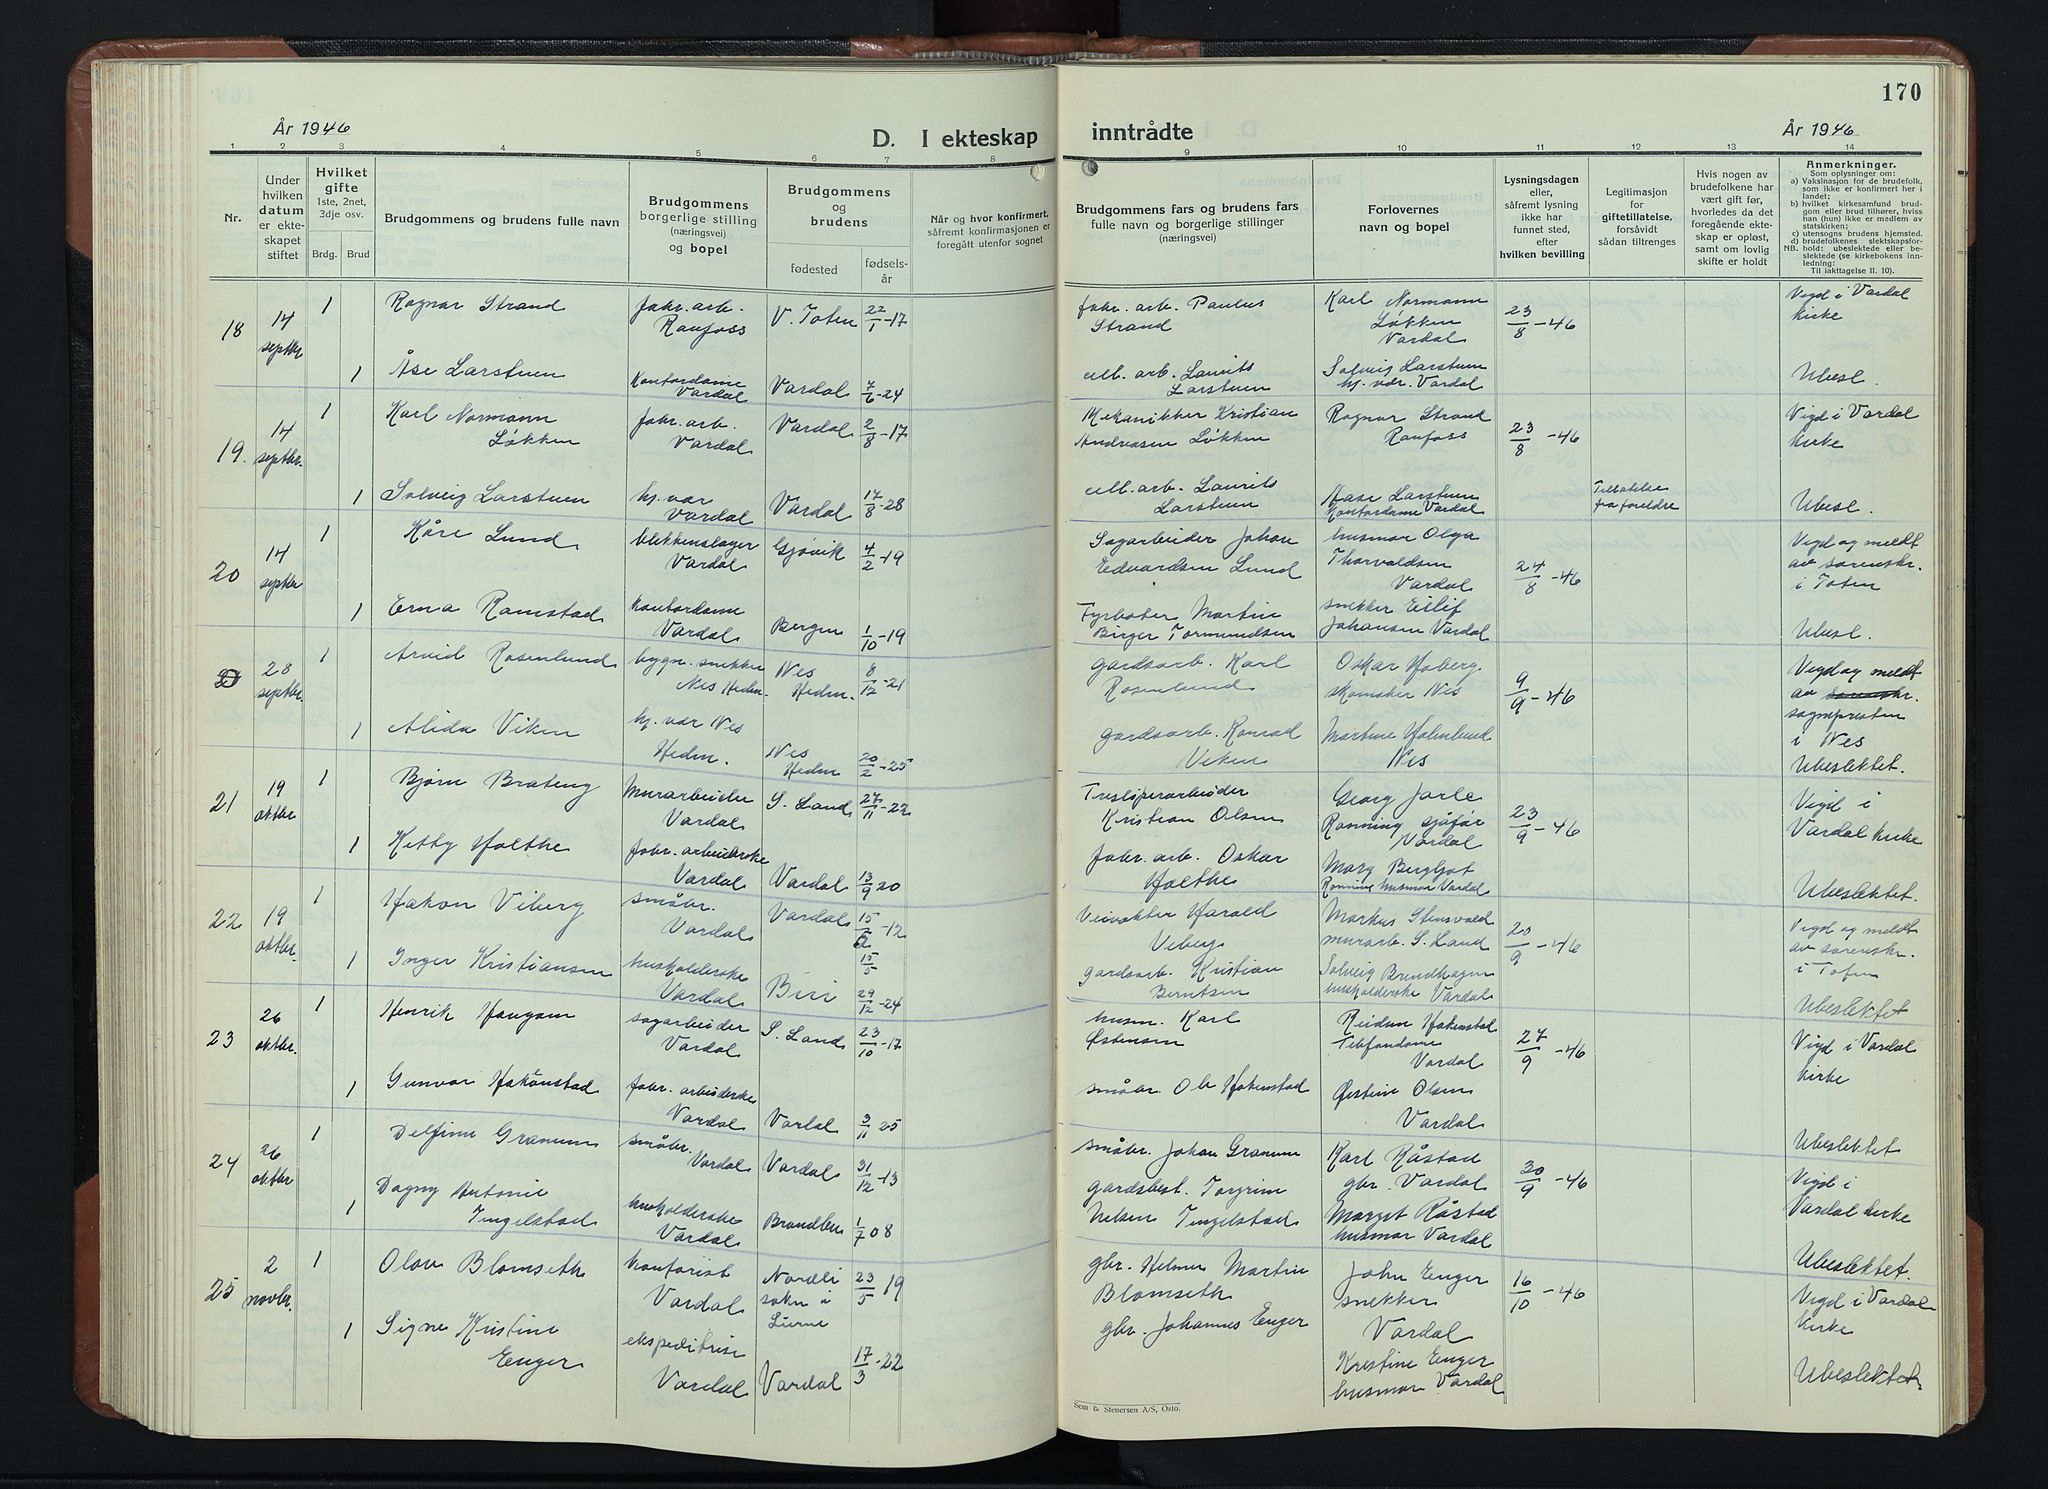 170
År 1946
D. I ekteskap
inntrådte
År 1946
1 2 3 4 5 6 7 8 9 10 11 12 13 14
Nr.
Under
hvilken
datum
er ekte-
skapet
stiftet
Hvilket
gifte
1ste, 2net,
3dje osv.
Brdg. Brud
Brudgommens og brudens fulle navn
Brudgommens
borgerlige stilling
(næringsvei)
og bopel
Brudgommens
og
brudens
fødested
fødsels-
år
Når og hvor konfirmert,
såfremt konfirmasjonen er
foregått utenfor sognet
Brudgommens fars og brudens fars
fulle navn og borgerlige stillinger
(næringsvei)
Forlovernes
navn og bopel
Lysningsdagen
eller,
såfremt lysning
ikke har
funnet sted,
efter
hvilken bevilling
Legitimasjon
for
giftetillatelse,
forsåvidt
sådan tiltrenges
Hvis nogen av
brudefolkene har
vært gift før,
hvorledes da det
foregående ekte-
skap er opløst,
samt om lovlig
skifte er holdt
Anmerkninger.
Som oplysninger om:
a) Vaksinasjon for de brudefolk,
som ikke er konfirmert her i
landet;
b) hvilket kirkesamfund brud-
gom eller brud tilhører, hviss
han (hun) ikke er medlem av
statskirken;
c) utensogns brudens hjemsted.
d) brudefolkenes slektskapsfor-
NB. hold: ubeslektede eller be-
slektede (se kirkebokens inn-
ledning:
Til iakttagelse II. 10).
18
14
septbr.
1
Ragnar Strand
fabr. arb.
Raufoss
V. Toten
22/1-17
fabr. arb. Paulus
Strand
Karl Normann
Løkken
Vardal
23/8-46
Vigd i Vardal
kirke
1
Åse Larstuen
Kontordame
Vardal
Vardal
7/6-24
cell. arb. Laurits
Larstuen
Solveig Larstuen
hj. vær. Vardal
Ubesl.
19.
14
septbr.
1
Karl Normann
Løkken
fabr. arb.
Vardal
Vardal
2/8-17
Mekanikker Kristian
Andreasen Løkken
Ragnar Strand
Raufoss
23/8-46
Vigd i Vardal
kirke
1
Solveig Larstuen
hj. vær
Vardal
Vardal
17/8-28
cell. arb. Laurits
Larstuen
Aase Larstuen
Kontordame Vardal
Tillatelse
fra foreldre
Ubesl.
20
14
septbr
1
Kåre Lund
blekkenslager
Vardal
Gjøvik
4/2-19
Sagarbeider Johan
Edvardsen Lund
husmor Olga
Thorvaldsen
Vardal
24/8-46
Vigd og meldt
av sorenskr.
i Toten
1
Erna Ramstad
kontordame
Vardal
Bergen
1/10-19
Fyrbøter Martin
Birger Tormundsen
snekker Eilif
Johansen Vardal
Ubesl.
28
septbr.
1
Arvid Rosenlund
bygn. snekker
Nes Hedm.
Nes
Hedm.
8/12-21
gardsarb. Karl
Rosenlund
Oskar Hoberg.
skomaker Nes
9/9-46
Vigd og meldt
av sorenskr.
sognepresten
i Nes
Ubeslektet.
1
Alida Viken
hj. vær Nes
Hedm.
Nes
Hedm
20/2-25
gardsarb. Konrad
Viken
Martine Holenlund
Nes
21
19
oktbr
1
Bjørn Brateng
Murarbeider
Vardal
S. Land
27/11-22
Tresliperarbeider
Kristian Olsen
Georg Jarle
Rønning sjåfør
Vardal
23/9-46
Vigd i
Vardal kirke
1
Kitty Holthe
fabr. arbeiderske
Vardal
Vardal
13/9 20
fabr. arb. Oskar
Holthe
Mary Bergljot
Rønning husmor Vardal
Ubeslektet.
22
19
oktbr.
1
Håkon Viberg
småbr.
Vardal
Vardal
15/5-12
15/5
Veivokter Harald
Viberg
Markus Stensvald
murarb. S. Land
20/9-46
Vigd og meldt
av sorenskr.
i Toten
1
Inger Kristiansen
husholderske
Vardal
Biri
29/12-24
gardsarb. Kristian
Berntsen
Solveig Brundhagen
husholderske Vardal
Ubeslektet
23
26
oktbr.
1
Henrik Haugom
sagarbeider
Vardal
S. Land
23/10-17
husm. Karl
Østensen
Reidun Hakenstad
Telefondame
Vardal
27/9-46
Vigd i Vardal
kirke
1
Gunvor Hakonstad
fabr. arbeiderske
Vardal
Vardal
3/11 25
småbr. Ole Hakenstad
Østine Olsen
Vardal
Ubeslektet
24
26
oktbr
1
Delfine Granum
småbr.
Vardal
Vardal
31/12-13
småbr. Johan Granum
Karl Råstad
gbr. Vardal
30/9-46
Vigd i
Vardal kirke
1
Dagny Antonie
Tingelstad
husholderske
Vardal
Brandbu
1/7 08
gardsbest. Torgrim
Nelsen Tingelstad
Margit Råstad
husmor Vardal
Ubeslektet.
25
2
novbr.
1
Olav Blomseth
kontorist
Vardal
Nordli
sokn i
Lierne
23/5 19
gbr. Helmer Martin
Blomseth
John Enger
snekker
Vardal
16/10-46
Vigd i Vardal
kirke
1
Signe Kristine
Enger
ekspeditrise
Vardal
Vardal
17/3-22
gbr. Johannes Enger
Kristine Enger
husmor Vardal
Ubeslektet
Sem & Stenersen A/S, Oslo.